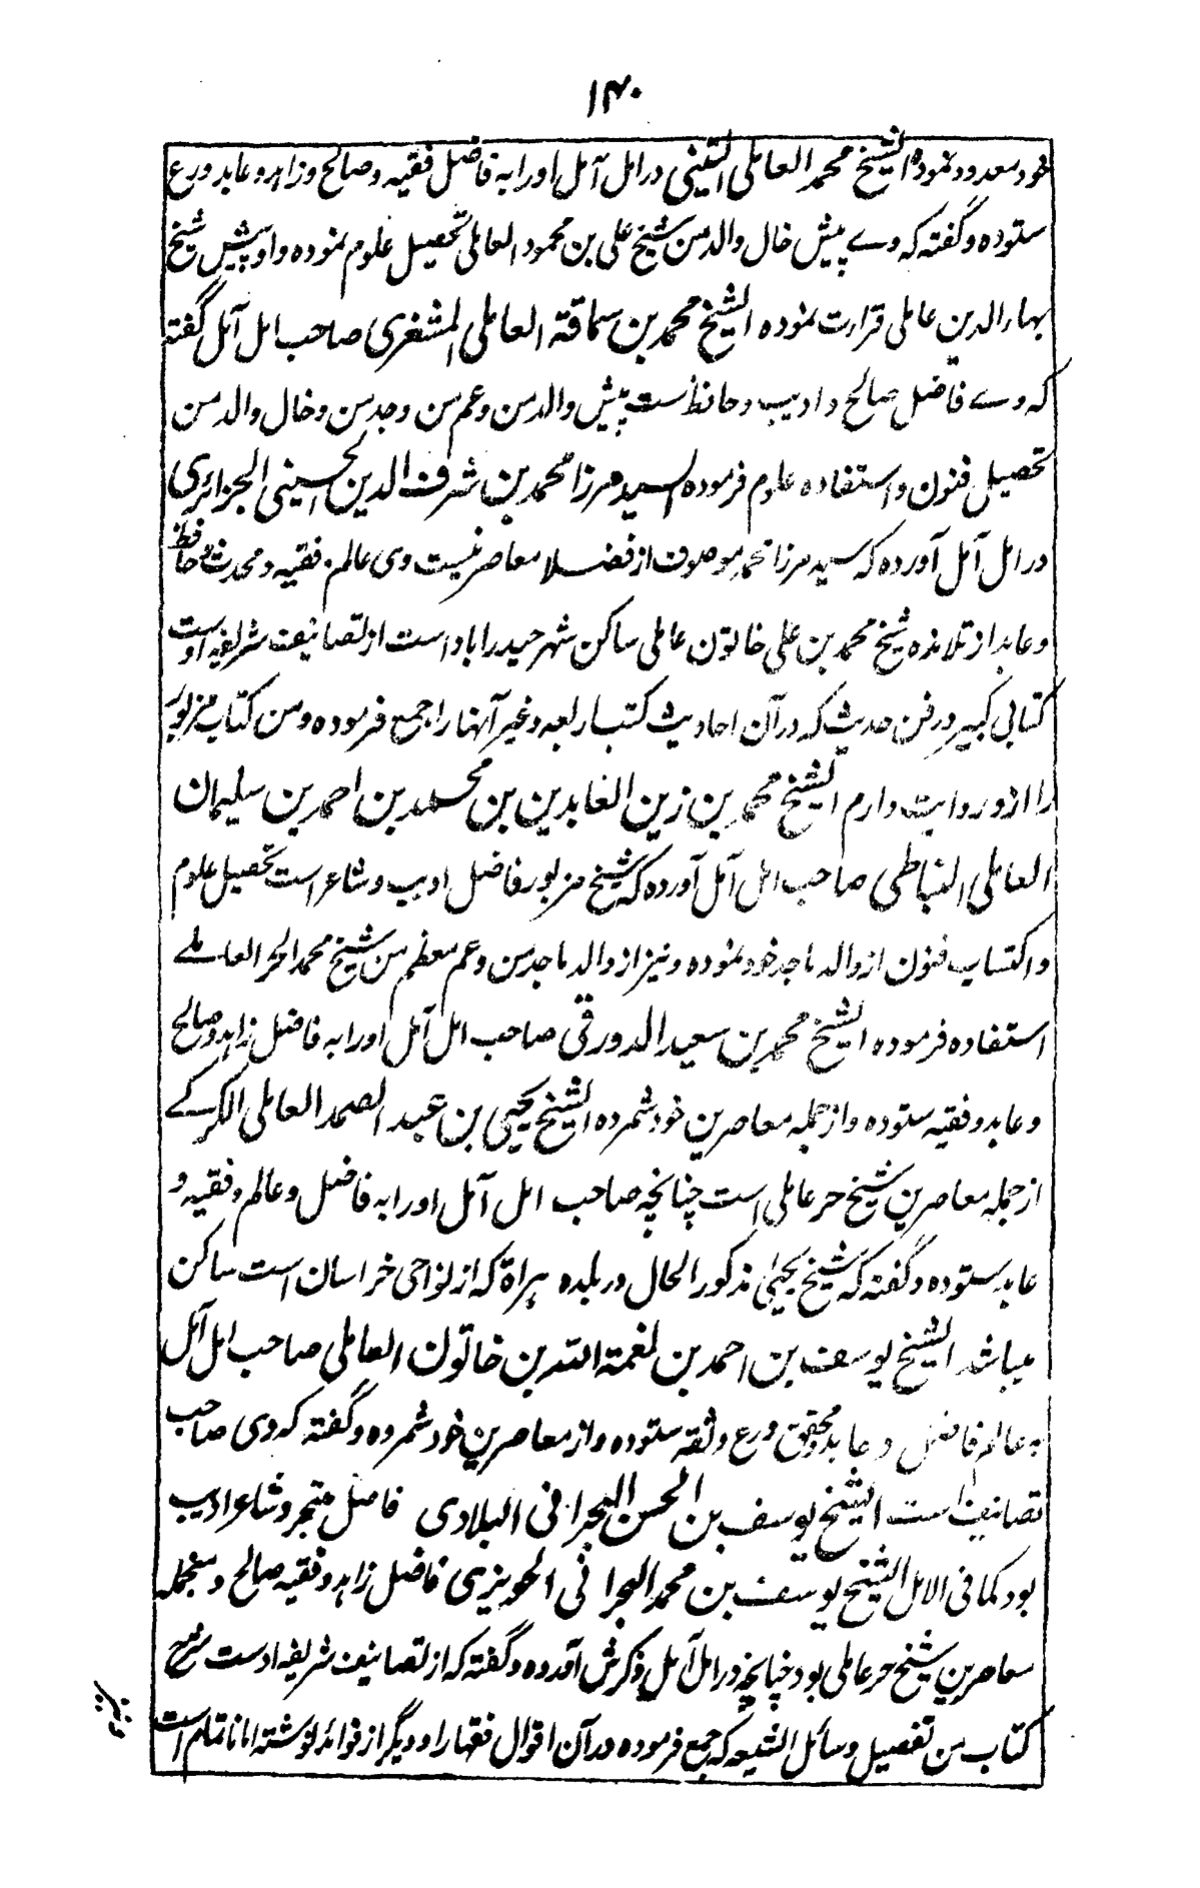 ۱۴۰
خود معدود نموده الشیخ محمد العاملی التبنینی در امل آمل اورا به فاضل فقیه و صالح و زاهد و عابد ورع
ستوده و گفته که وے پیش خال والد من شیخ علی بن محمود العاملی تحصیل علوم نموده و او پیش شیخ
بهاء الدین عاملی قراءت نموده الشیخ محمد بن سماقة العاملی المشغری صاحب امل آمل گفته
که وے فاضل صالح و ادیب و حافظ ست پیش والد من و عم من و جد من و خال والد من
تحصیل فنون و استفاده علوم فرموده السید مرزا محمد بن شرف الدین الحسینی الجزائری
در امل آمل آورده که سید مرزا محمد موصوف از فضلا معاصرنیست وی عالم فقیه و محدث و حافظ
و عابد از تلامذه شیخ محمد بن علی خاتون عاملی ساکن شهر حیدراباد است از تصانیف شریفه اوست
کتابی کبیر در فن حدیث که در آن احادیث کتب اربعه و غیر آنها را جمع فرموده و من کتاب مزبور
را از و روایت دارم الشیخ محمد بن زین العابدین بن محمد بن احمد بن سلیمان
العاملی النباطی صاحب امل آمل آورده که شیخ مزبور فاضل ادیب و شاعر است تحصیل علوم
و اکتساب فنون از والد ماجد خود نموده و نیز از والد ماجد من و عم معظم من شیخ محمد الحر العاملے
استفاده فرموده الشیخ محمد بن سعید الدورقی صاحب امل آمل اورا به فاضل زاهد و صالح
و عابد و فقیه ستوده و از جمله معاصرین خود شمرده الشیخ یحیی بن عبد الصمد العاملی الکرکے
از جمله معاصرین شیخ حر عاملی است چنانچه صاحب امل آمل اورا به فاضل و عالم و فقیه و
عابد ستوده و گفته که شیخ یحییٰ مذکور الحال در بلده هراة که از نواحی خراسان است ساکن
میباشد الشیخ یوسف بن احمد بن نعمة الله بن خاتون العاملی صاحب امل آمل
به عالم فاضل و عابد و محقق ورع و ثقه ستوده و از معاصرین خود شمرده و گفته که وی صاحب
تصانیف است الشیخ یوسف بن الحسن البحرانی البلادی فاضل متبحر و شاعر ادیب
بود کما فی الامل الشیخ یوسف بن محمد البحرانی الحویزی فاضل زاهد و فقیه صالح و منجمله
معاصرین شیخ حر عاملی بود چنانچه در امل آمل ذکرش آورده و گفته که از تصانیف شریفه اوست شرح
کتاب من تفصیل وسائل الشیعه که جمع فرموده در آن اقوال فقها را و دیگر از فوائد نوشته اما ناتمام است